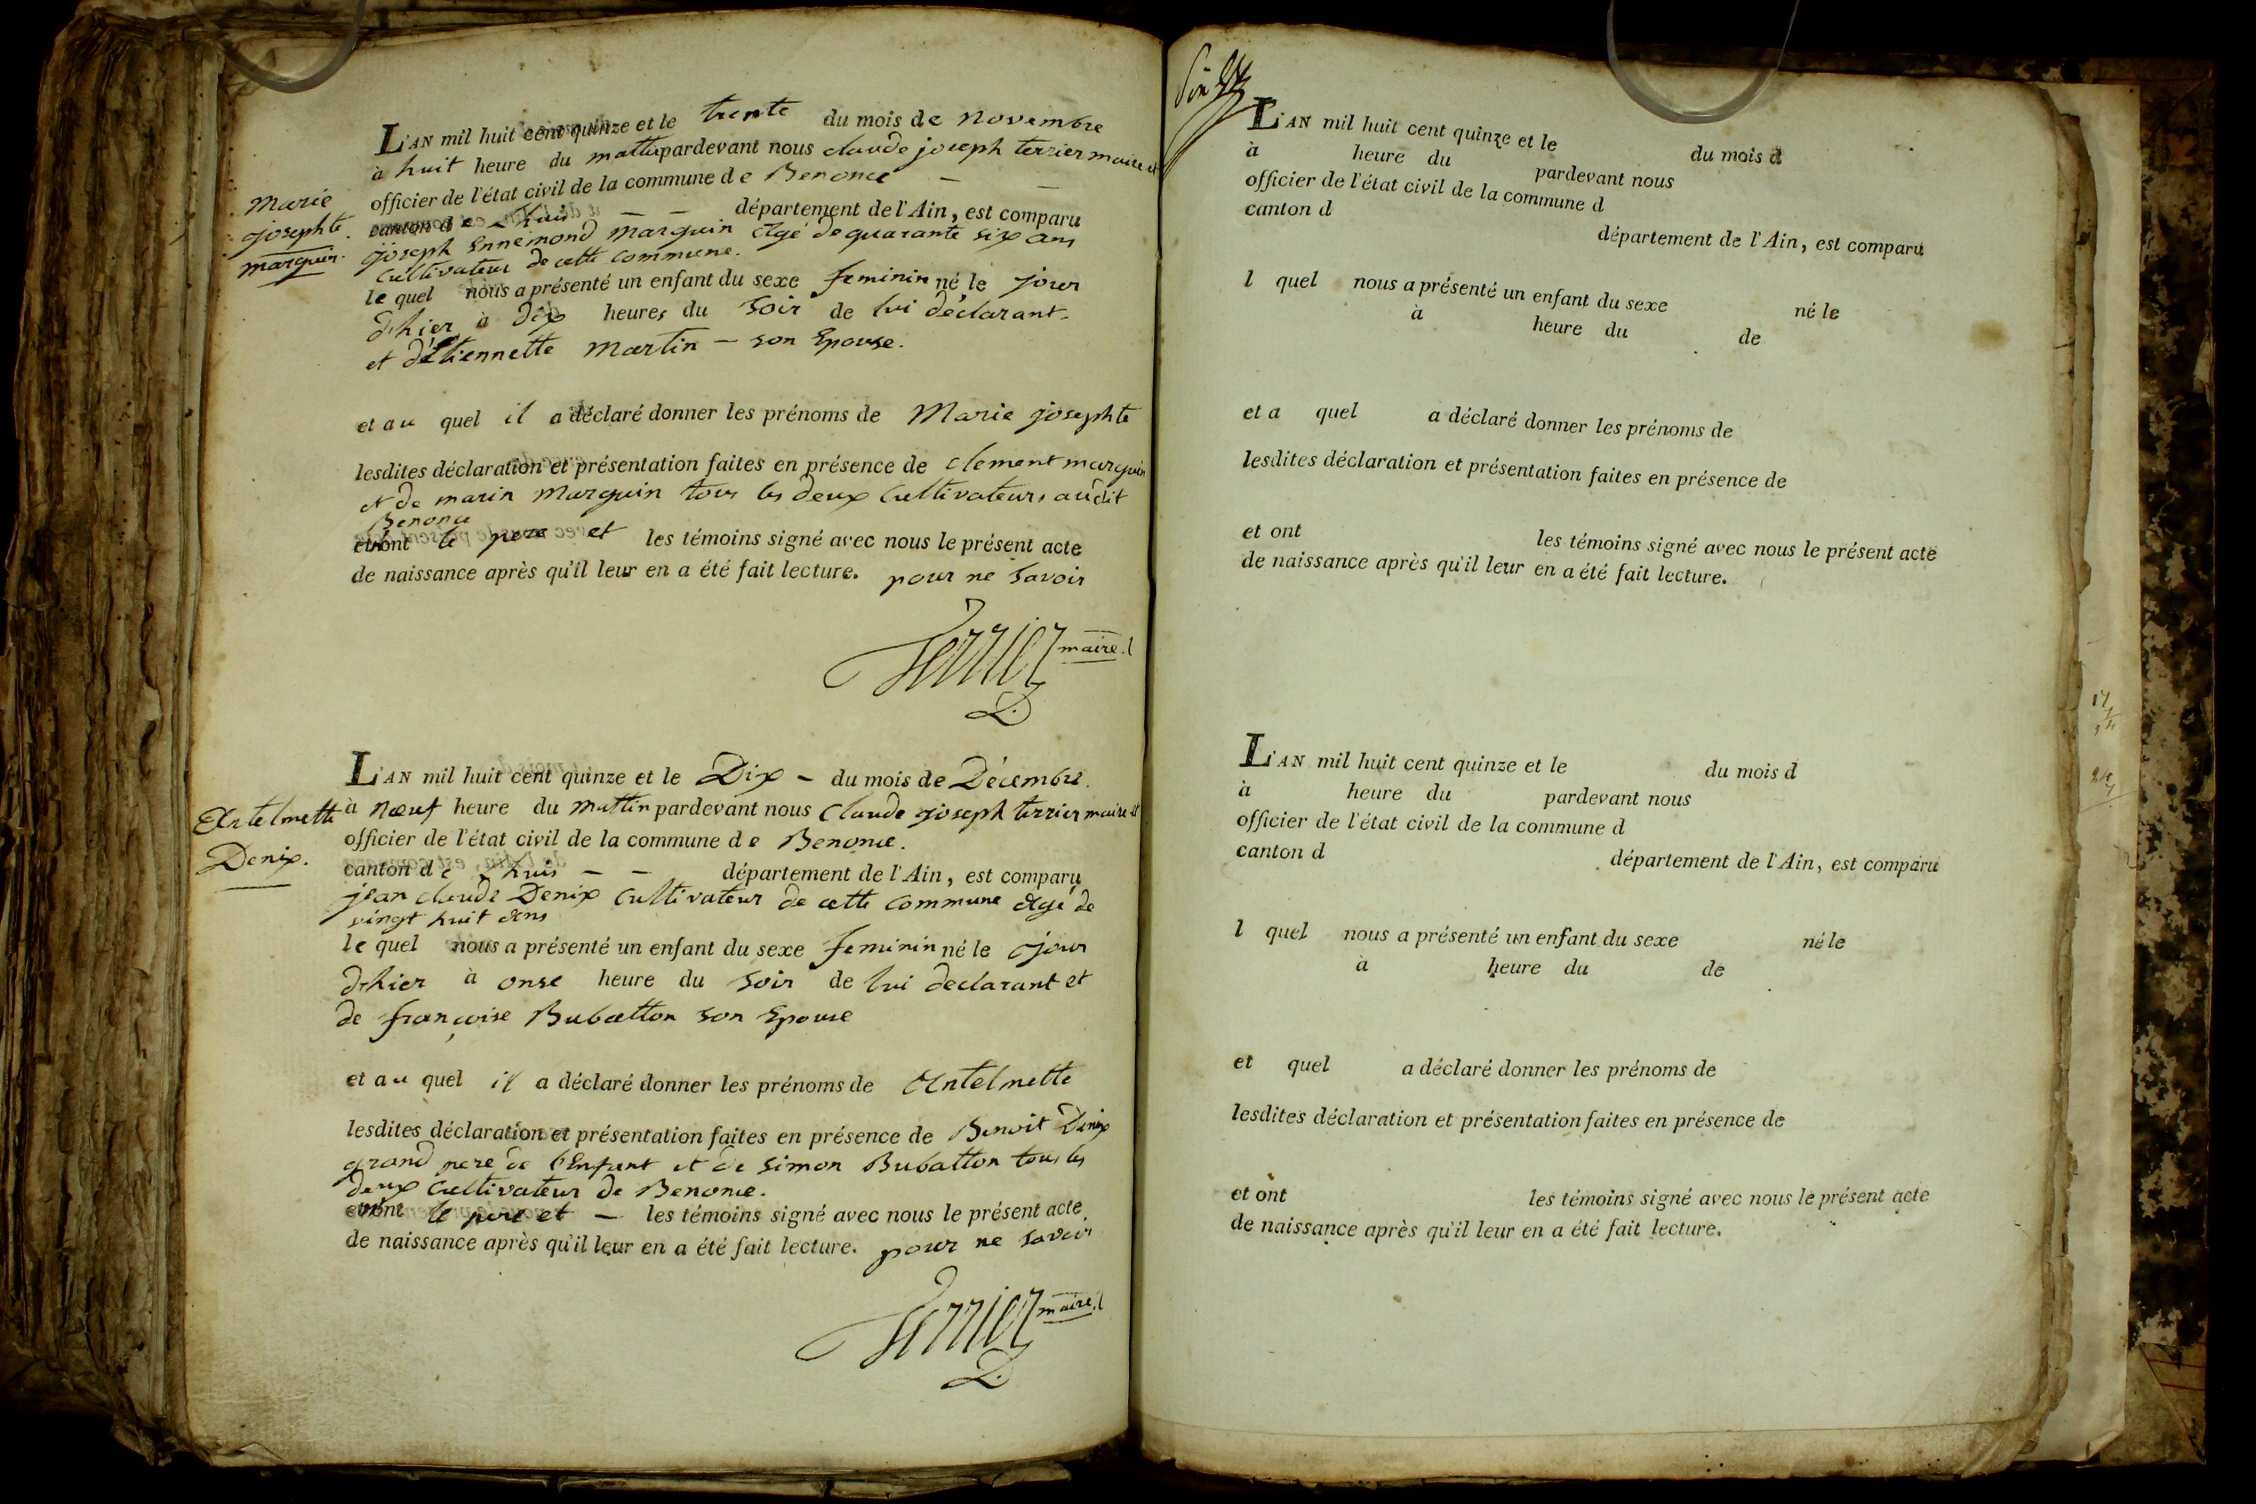 L'AN mil huit cent quinze et le trente du mois de novembre
à huit heure du mattin pardevant nous claude joseph terrier maire et
officier de l'état civil de la commune de Benonce — —
canton de Lhuis — — département de l'Ain, est comparu
joseph Ennemond marguin Agé de quarante six ans
Cultivateur de cette commune.
le quel nous a présenté un enfant du sexe feminin né le jour
d'hier à dix heures du soir de lui déclarant
et d'Etiennette Martin — son Epouse.
Marie
josephte.
marguin.
et au quel il a déclaré donner les prénoms de Marie josephte
lesdites déclaration et présentation faites en présence de clement marguin
et de marin Marguin tous les deux Cultivateurs audit
Benonce
ont le pere et les témoins signé avec nous le présent acte
de naissance après qu'il leur en a été fait lecture. pour ne savoir
Terrier maire
L'AN mil huit cent quinze et le Dix — du mois de Décembre.
à Nœuf heure du mattin pardevant nous Claude joseph terrier maire et
officier de l'état civil de la commune de Benonce.
canton de Lhuis — — département de l'Ain, est comparu
jean claude Denix Cultivateur de cette commune Agé de
vingt huit Ans
le quel nous a présenté un enfant du sexe feminin né le jour
d'hier à onse heure du soir de lui declarant et
de françoise Bubatton son Epouse
Antelmette
Denix.
et au quel il a déclaré donner les prénoms de Antelmette
lesdites déclaration et présentation faites en présence de Benoit Denix
grand pere de l'Enfant et de simon Bubatton tous les
deux Cultivateur de Benonce.
ont le pere et — les témoins signé avec nous le présent acte
de naissance après qu'il leur en a été fait lecture. pour ne savoir
Terrier maire
L'AN mil huit cent quinze et le du mois d
à heure du pardevant nous
officier de l'état civil de la commune d
canton d département de l'Ain, est comparu
l quel nous a présenté un enfant du sexe né le
à heure du de
et a quel a déclaré donner les prénoms de
lesdites déclaration et présentation faites en présence de
et ont les témoins signé avec nous le présent acte
de naissance après qu'il leur en a été fait lecture.
L'AN mil huit cent quinze et le du mois d
à heure du pardevant nous
officier de l'état civil de la commune d
canton d département de l'Ain, est comparu
l quel nous a présenté un enfant du sexe né le
à heure du de
et quel a déclaré donner les prénoms de
lesdites déclaration et présentation faites en présence de
et ont les témoins signé avec nous le présent acte
de naissance après qu'il leur en a été fait lecture.